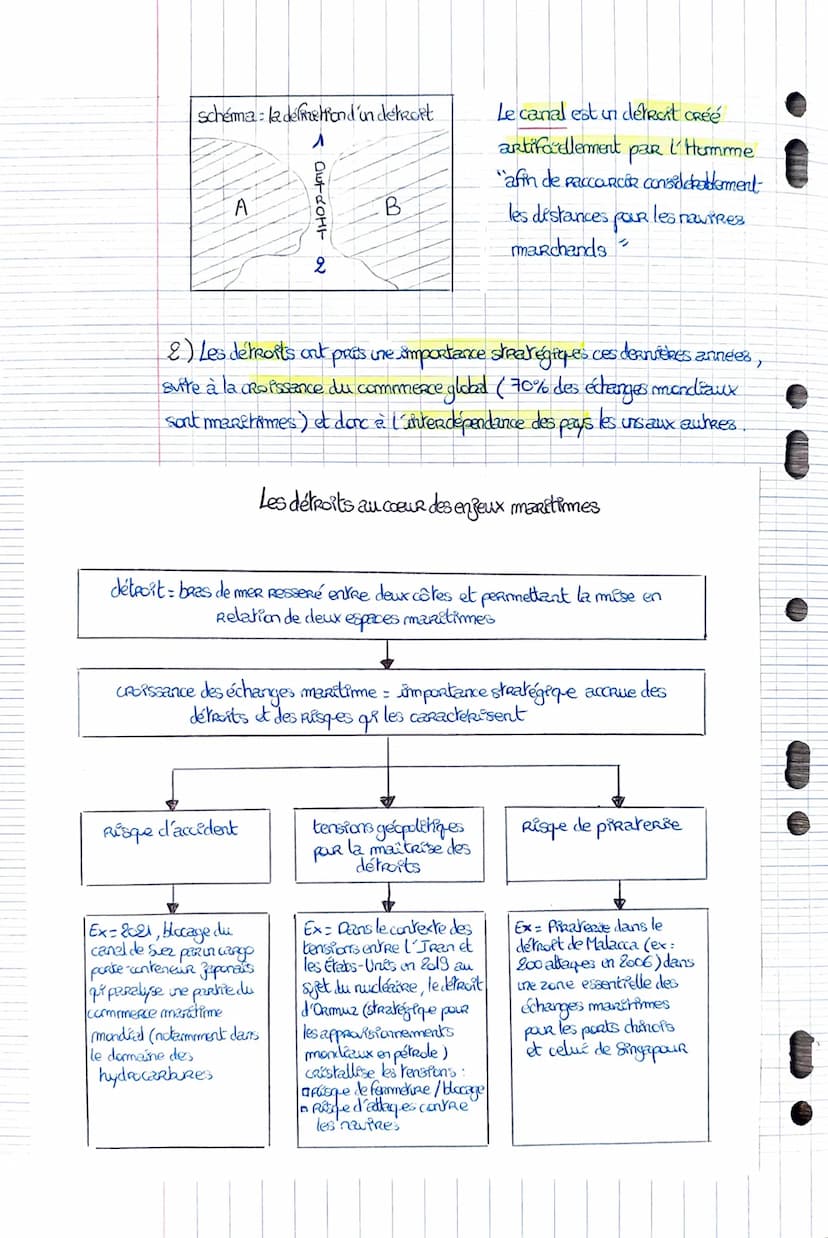 schéma : la définition d'un détroit
1
DETROIT
A
B
2
Le canal est un détroit créé
artificiellement par l'Homme
"afin de raccourcir considérablement
les distances pour les navires
marchands"
2) Les détroits ont pris une importance stratégiques ces dernières années,
suite à la croissance du commerce global (70% des échanges mondiaux
sont maritimes) et donc à l'interdépendance des pays les uns aux autres.
Les détroits au cœur des enjeux maritimes
détroit = bras de mer resseré entre deux côtes et permettant la mise en
relation de deux espaces maritimes
croissance des échanges maritime = importance stratégique accrue des
détroits et des risques qi les caractérisent
Risque d'accident
tensions géopolitiques
pour la maîtrise des
détroits
Risque de piraterie
Ex = 2021, blocage du
canal de Suez par un cargo
porte-conteneur japonais
qi paralyse une partie du
commerce maritime
mondial (notamment dans
le domaine des
hydrocarbures
Ex = Dans le contexte des
tensions entre l'Iran et
les États-Unis en 2019 au
sujet du nucléaire, le détroit
d'Ormuz (stratégique pour
les approvisionnements
mondiaux en pétrole)
cristallise les tensions :
▫ risque de fermeture / blocage
▫ risque d'attaques contre
les navires
Ex = Piraterie dans le
détroit de Malacca (ex :
200 attaques en 2006) dans
une zone essentielle des
échanges maritimes
pour les ports chinois
et celui de Singapour